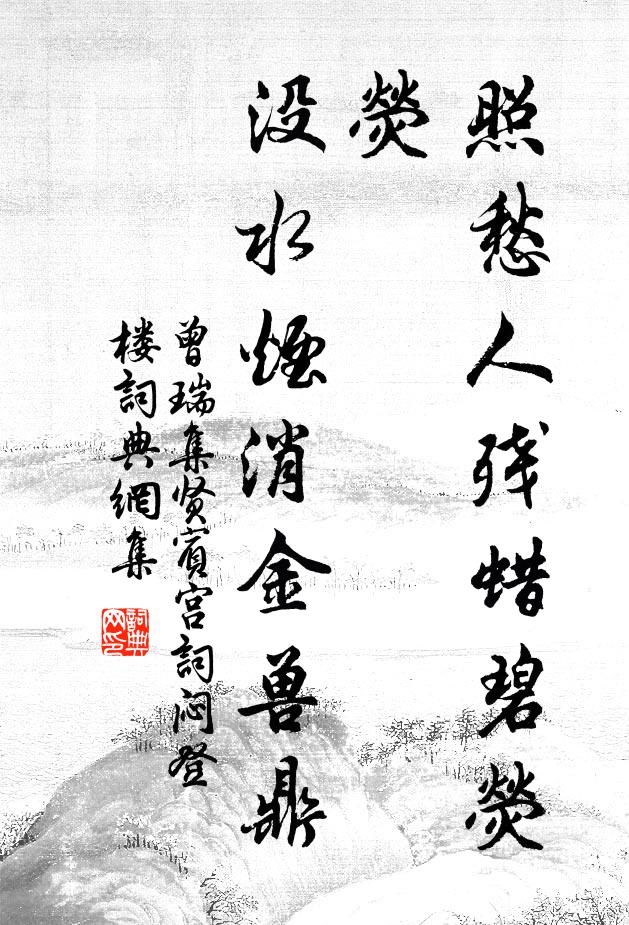 照愁人残蜡碧荧
荧
没水烟消金兽鼎
曾瑞集贤宾宫詞闷登
楼詞典網集
詞典